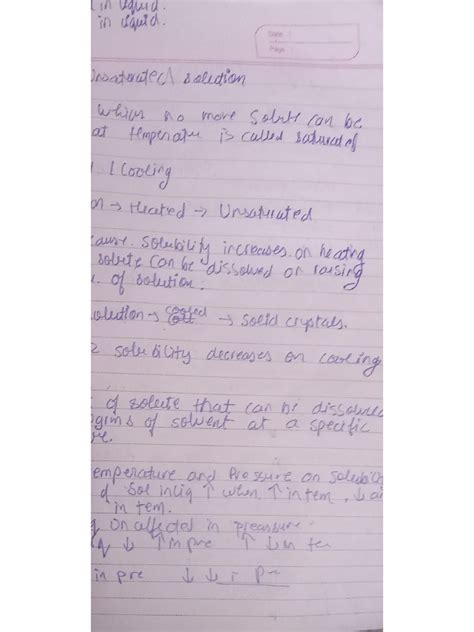 in liquid.
in liquid.
Date
Page
Unsaturated solution
which no more solute can be
at temperature is called saturated
Cooling
on → Heated → Unsaturated
cause solubility increases on heating
solute can be dissolved on raising
of solution.
solution → cooled → solid crystals.
solubility decreases on cooling
of solute that can be dissolved
grms of solvent at a specific
re.
emperature and Pressure on solubility
Sol in liq ↑ when ↑ in tem, ↓
in tem.
Unaffected in preassure
↓ ↑ in pre ↑ ↓ in te
in pre ↓ ↓ i pre